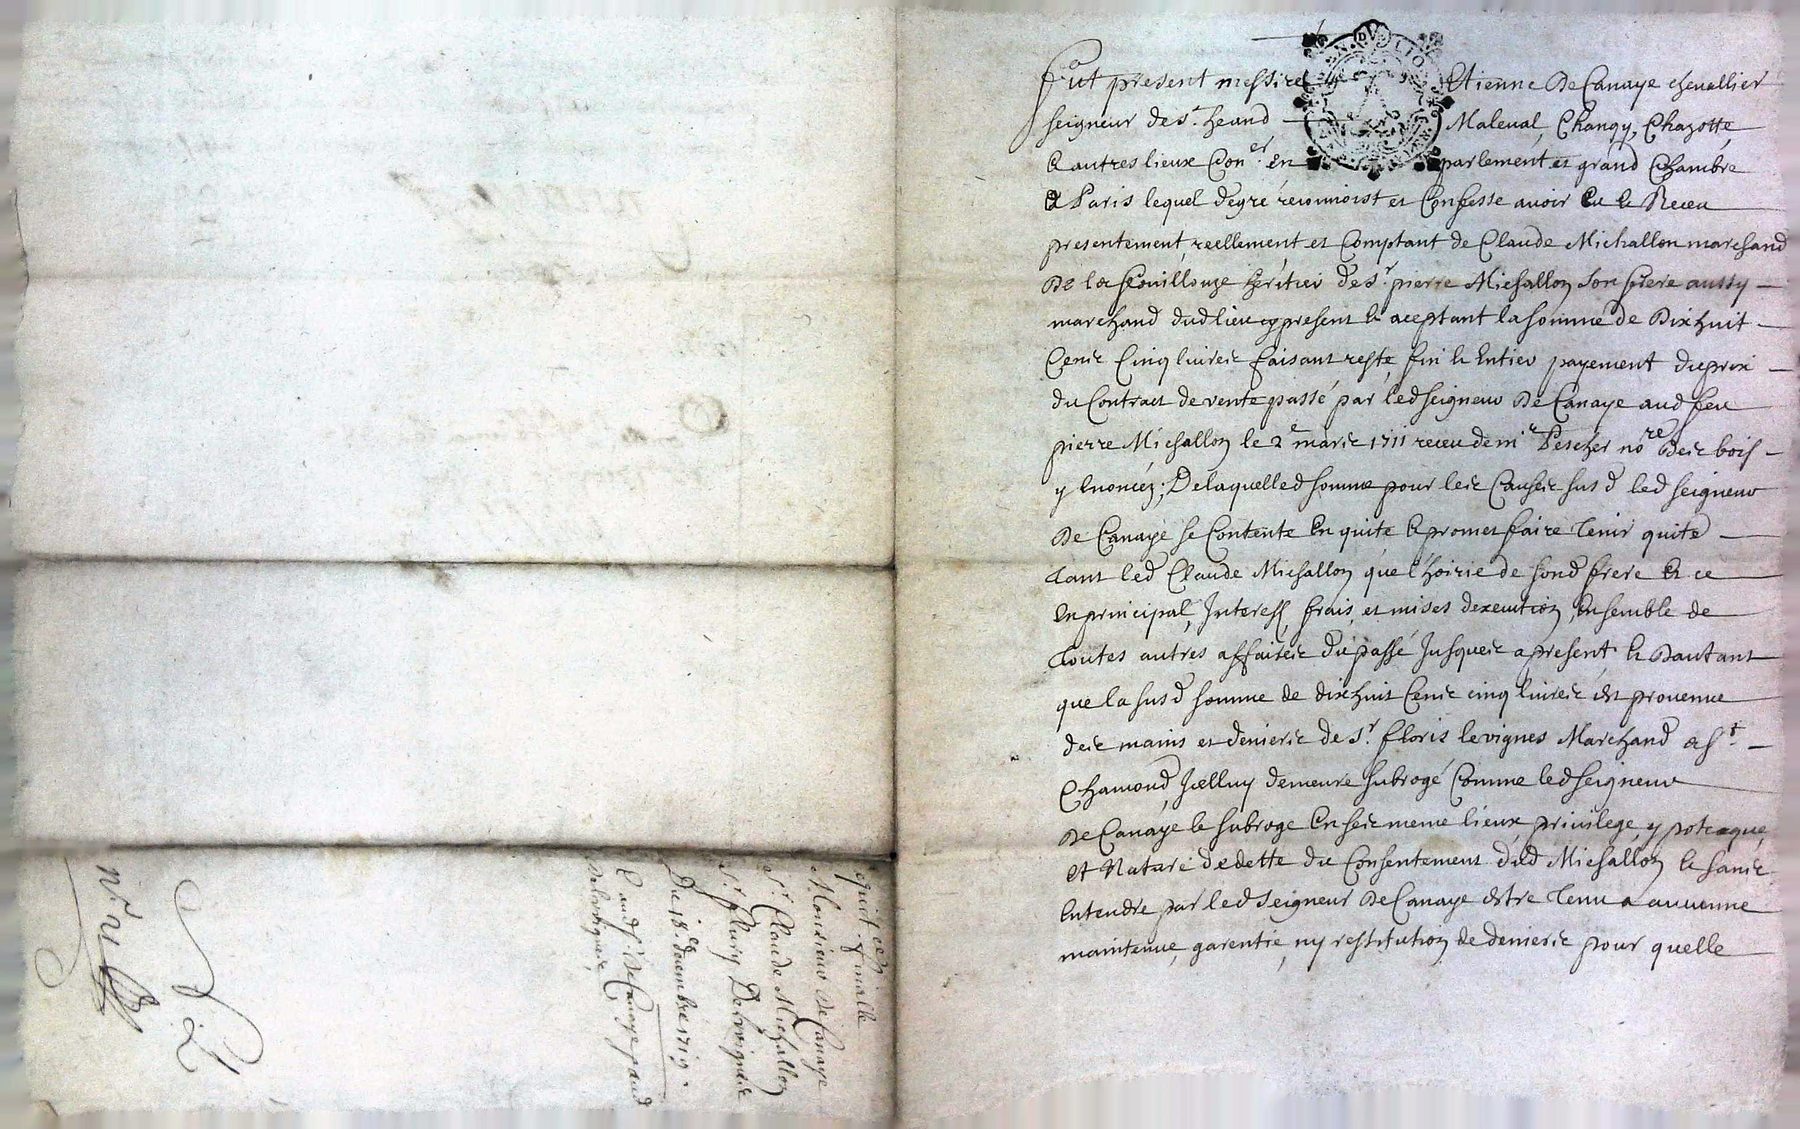 Fut present messire Etienne De Canaye chevallier
seigneur de St. heand Maleval, Changy, Chazotte,
& autres lieux Coner. en parlement et grand Chambre
a Paris lequel degré reconnoist et Confesse avoir Eu & Receu
presentement, reellement, et Comptant de Claude Michallon marchand
De la feouillouze heritier de Sr. pierre Michallon son frere aussy
marchand dud lieu cy present & aceptant la somme de Dixhuit
Cent Cinq livres faisant reste, fin & Entier payement du prix
du Contract de vente passé par led seigneur De Canaye aud feu
pierre Michallon le 2e mars 1711 receu de me Pescher nore Des bois
y Enoncez; De laquelled somme pour les Causes susd led seigneur
De Canaye se Contente En quite & promet faire Tenir quite
Tant led Claude Michallon que l'hoirie de sond frere & ce
En principal, Interest, frais, et mises dexecution, Ensemble de
Toutes autres affaires du passé Jusques a present, & Dautant
que la susd somme de dixhuit Cent cinq livres est provenue
des mains et deniers de Sr. floris levignes Marchand a St.
Chamond, Icelluy demeure subrogé Comme led seigneur
De Canaye le subroge En ses meme lieux, privilege, ypoteque,
et Nature de dette du Consentement dud Michallon & sans
Entendre par led seigneur De Canaye estre Tenu a aucunne
maintenue, garentie, ny restitution de deniers pour quelle
Monsieur De Canaye
Sr Claude Michallon
Sr fleury Delavignes
Du 18e decembre 1719.